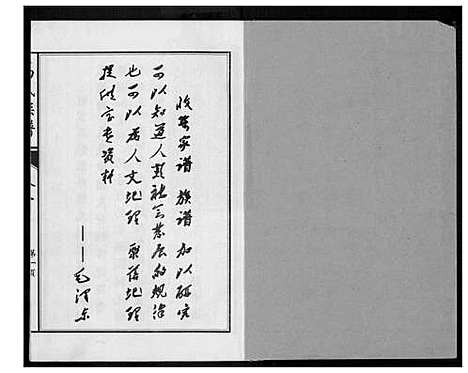 收集家谱 族谱 加以研究
可以知道人类社会发展的规律
也可以为人文地理 聚落地理
提供宝贵资料
——毛泽东
氏族谱
第一页